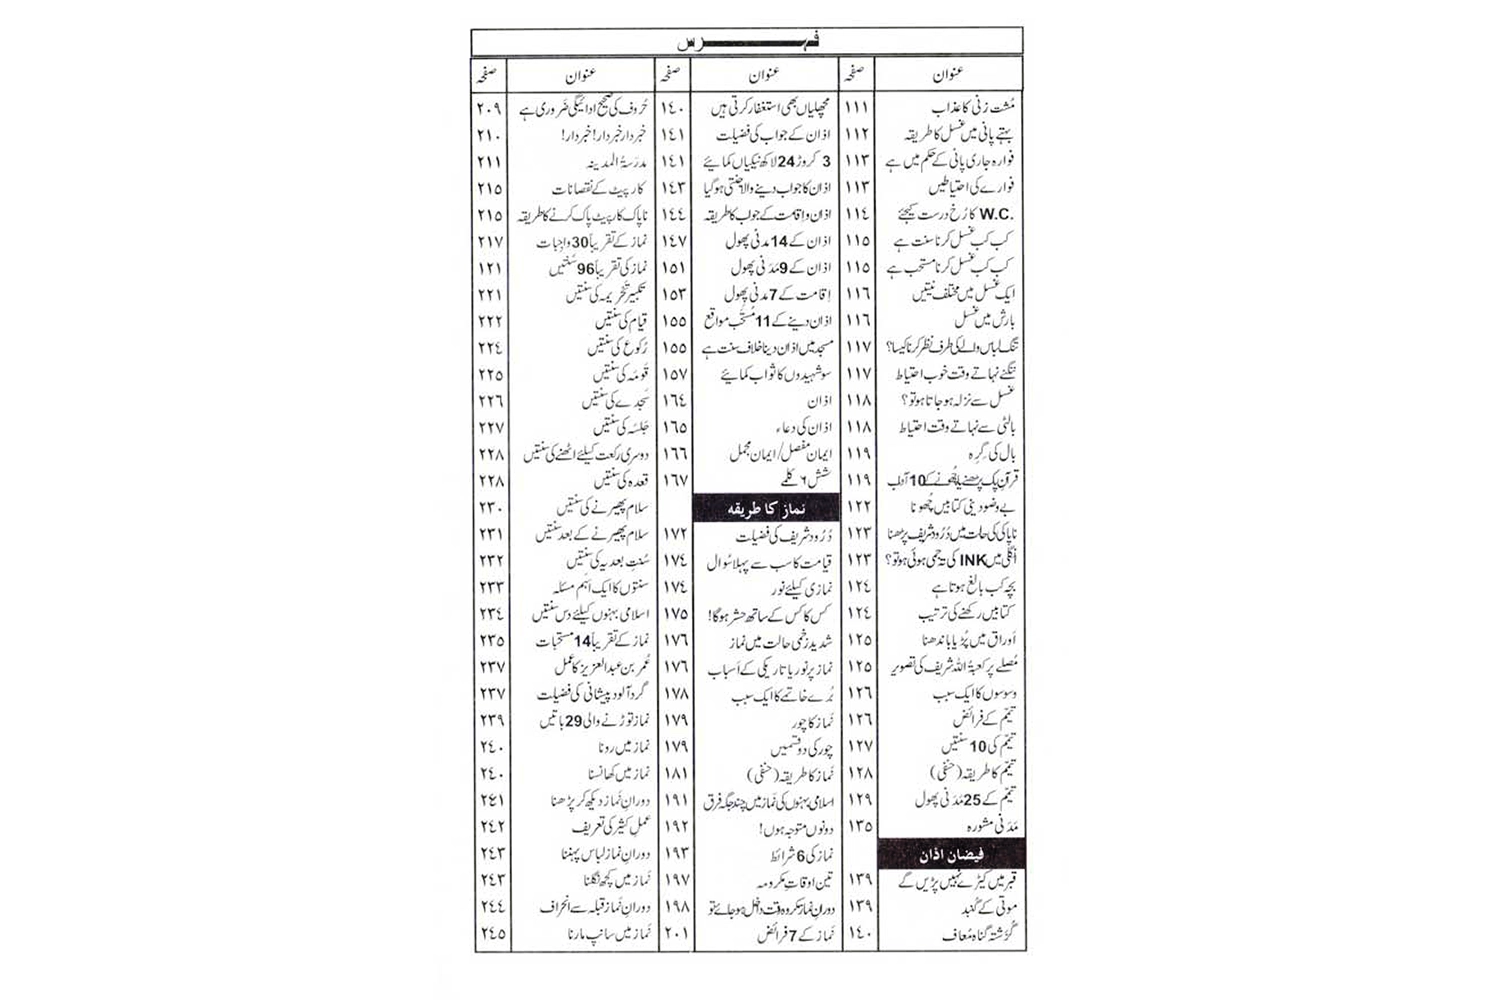 فہرس
عنوان صفحہ عنوان صفحہ عنوان صفحہ
مُشت زنی کا عذاب ١١١
بہتے پانی میں غسل کا طریقہ ١١٢
فوارہ جاری پانی کے حکم میں ہے ١١٣
فوارے کی احتیاطیں ١١٣
W.C. کا رُخ درست کیجئے ١١٤
کب کب غسل کرنا سنت ہے ١١٥
کب کب غسل کرنا مستحب ہے ١١٥
ایک غسل میں مختلف نیتیں ١١٦
بارش میں غسل ١١٦
تنگ لباس والے کی طرف نظر کرنا کیسا؟ ١١٧
ننگے نہاتے وقت خوب احتیاط ١١٧
غسل سے نزلہ ہو جاتا ہو تو؟ ١١٨
بالٹی سے نہاتے وقت احتیاط ١١٨
بال کی گِرہ ١١٩
قرآنِ پاک پڑھنے یا چُھونے کے 10 آداب ١١٩
بے وضو دینی کتابیں چُھونا ١٢٢
ناپاکی کی حالت میں دُرُود شریف پڑھنا ١٢٣
اُنگلی میں INK کی تہ جمی ہوئی ہو تو؟ ١٢٣
بچہ کب بالغ ہوتا ہے ١٢٤
کتابیں رکھنے کی ترتیب ١٢٤
اَوراق میں پُڑیا باندھنا ١٢٥
مُصلے پر کعبۃُ اللہ شریف کی تصویر ١٢٥
وسوسوں کا ایک سبب ١٢٦
تیمّم کے فرائض ١٢٦
تیمّم کی 10 سنتیں ١٢٧
تیمّم کا طریقہ (حنفی) ١٢٨
تیمّم کے 25 مَدَنی پھول ١٢٩
مَدَنی مشورہ ١٣٥
فیضان اذان
قبر میں کیڑے نہیں پڑیں گے ١٣٩
موتی کے گُنبد ١٣٩
گُزَشتہ گناہ مُعاف ١٤٠
مچھلیاں بھی استغفار کرتی ہیں ١٤٠
اذان کے جواب کی فضیلت ١٤١
3 کروڑ 24 لاکھ نیکیاں کمائیے ١٤١
اذان کا جواب دینے والا جنتی ہو گیا ١٤٣
اذان و اِقامت کے جواب کا طریقہ ١٤٤
اذان کے 14 مدنی پھول ١٤٧
اذان کے 9 مَدَنی پھول ١٥١
اِقامت کے 7 مدنی پھول ١٥٣
اذان دینے کے 11 مُستَحَب مواقع ١٥٥
مسجد میں اذان دینا خلافِ سنت ہے ١٥٥
سو شہیدوں کا ثواب کمائیے ١٥٧
اذان ١٦٤
اذان کی دعاء ١٦٥
ایمان مُفصل/ ایمان مجمل ١٦٦
شش ٦ کلمے ١٦٧
نماز کا طریقہ
دُرُود شریف کی فضیلت ١٧٢
قیامت کا سب سے پہلا سُوال ١٧٤
نمازی کیلئے نور ١٧٤
کس کا کس کے ساتھ حشر ہوگا! ١٧٥
شدید زخمی حالت میں نماز ١٧٦
نماز پر نور یا تاریکی کے اَسباب ١٧٦
بُرے خاتمے کا ایک سبب ١٧٨
نَماز کا چور ١٧٩
چور کی دو قسمیں ١٧٩
نَماز کا طریقہ (حنفی) ١٨١
اسلامی بہنوں کی نماز میں چند جگہ فرق ١٩١
دونوں متوجہ ہوں! ١٩٢
نماز کی 6 شرائط ١٩٣
تین اوقاتِ مکروہہ ١٩٧
دورانِ نماز مکروہ وقت داخل ہو جائے تو ١٩٨
نَماز کے 7 فرائض ٢٠١
حُروف کی صحیح ادائیگی ضَروری ہے ٢٠٩
خبردار خبردار! خبردار! ٢١٠
مدرَسۃُ المدینہ ٢١١
کارپیٹ کے نقصانات ٢١٥
ناپاک کارپیٹ پاک کرنے کا طریقہ ٢١٥
نماز کے تقریباً 30 واجبات ٢١٧
نماز کی تقریباً 96 سنتیں ١٢١
تکبیرِ تحریمہ کی سنتیں ٢٢١
قیام کی سنتیں ٢٢٢
رُکوع کی سنتیں ٢٢٤
قَومَہ کی سنتیں ٢٢٥
سَجدے کی سنتیں ٢٢٦
جلسَہ کی سنتیں ٢٢٧
دوسری رکعت کیلئے اٹھنے کی سنتیں ٢٢٨
قعدہ کی سنتیں ٢٢٨
سلام پھیرنے کی سنتیں ٢٣٠
سلام پھیرنے کے بعد سنتیں ٢٣١
سُنتِ بعدیہ کی سنتیں ٢٣٢
سنتوں کا ایک اَہَم مسئلہ ٢٣٣
اسلامی بہنوں کیلئے دس سنتیں ٢٣٤
نماز کے تقریباً 14 مستحبات ٢٣٥
عُمر بن عبدالعزیز کا عمل ٢٣٧
گرد آلود پیشانی کی فضیلت ٢٣٧
نماز توڑنے والی 29 باتیں ٢٣٩
نماز میں رونا ٢٤٠
نماز میں کھانسنا ٢٤٠
دورانِ نَماز دیکھ کر پڑھنا ٢٤١
عملِ کثیر کی تعریف ٢٤٢
دورانِ نماز لباس پہننا ٢٤٣
نَماز میں کچھ نگلنا ٢٤٣
دورانِ نَماز قبلہ سے انحراف ٢٤٤
نَماز میں سانپ مارنا ٢٤٥